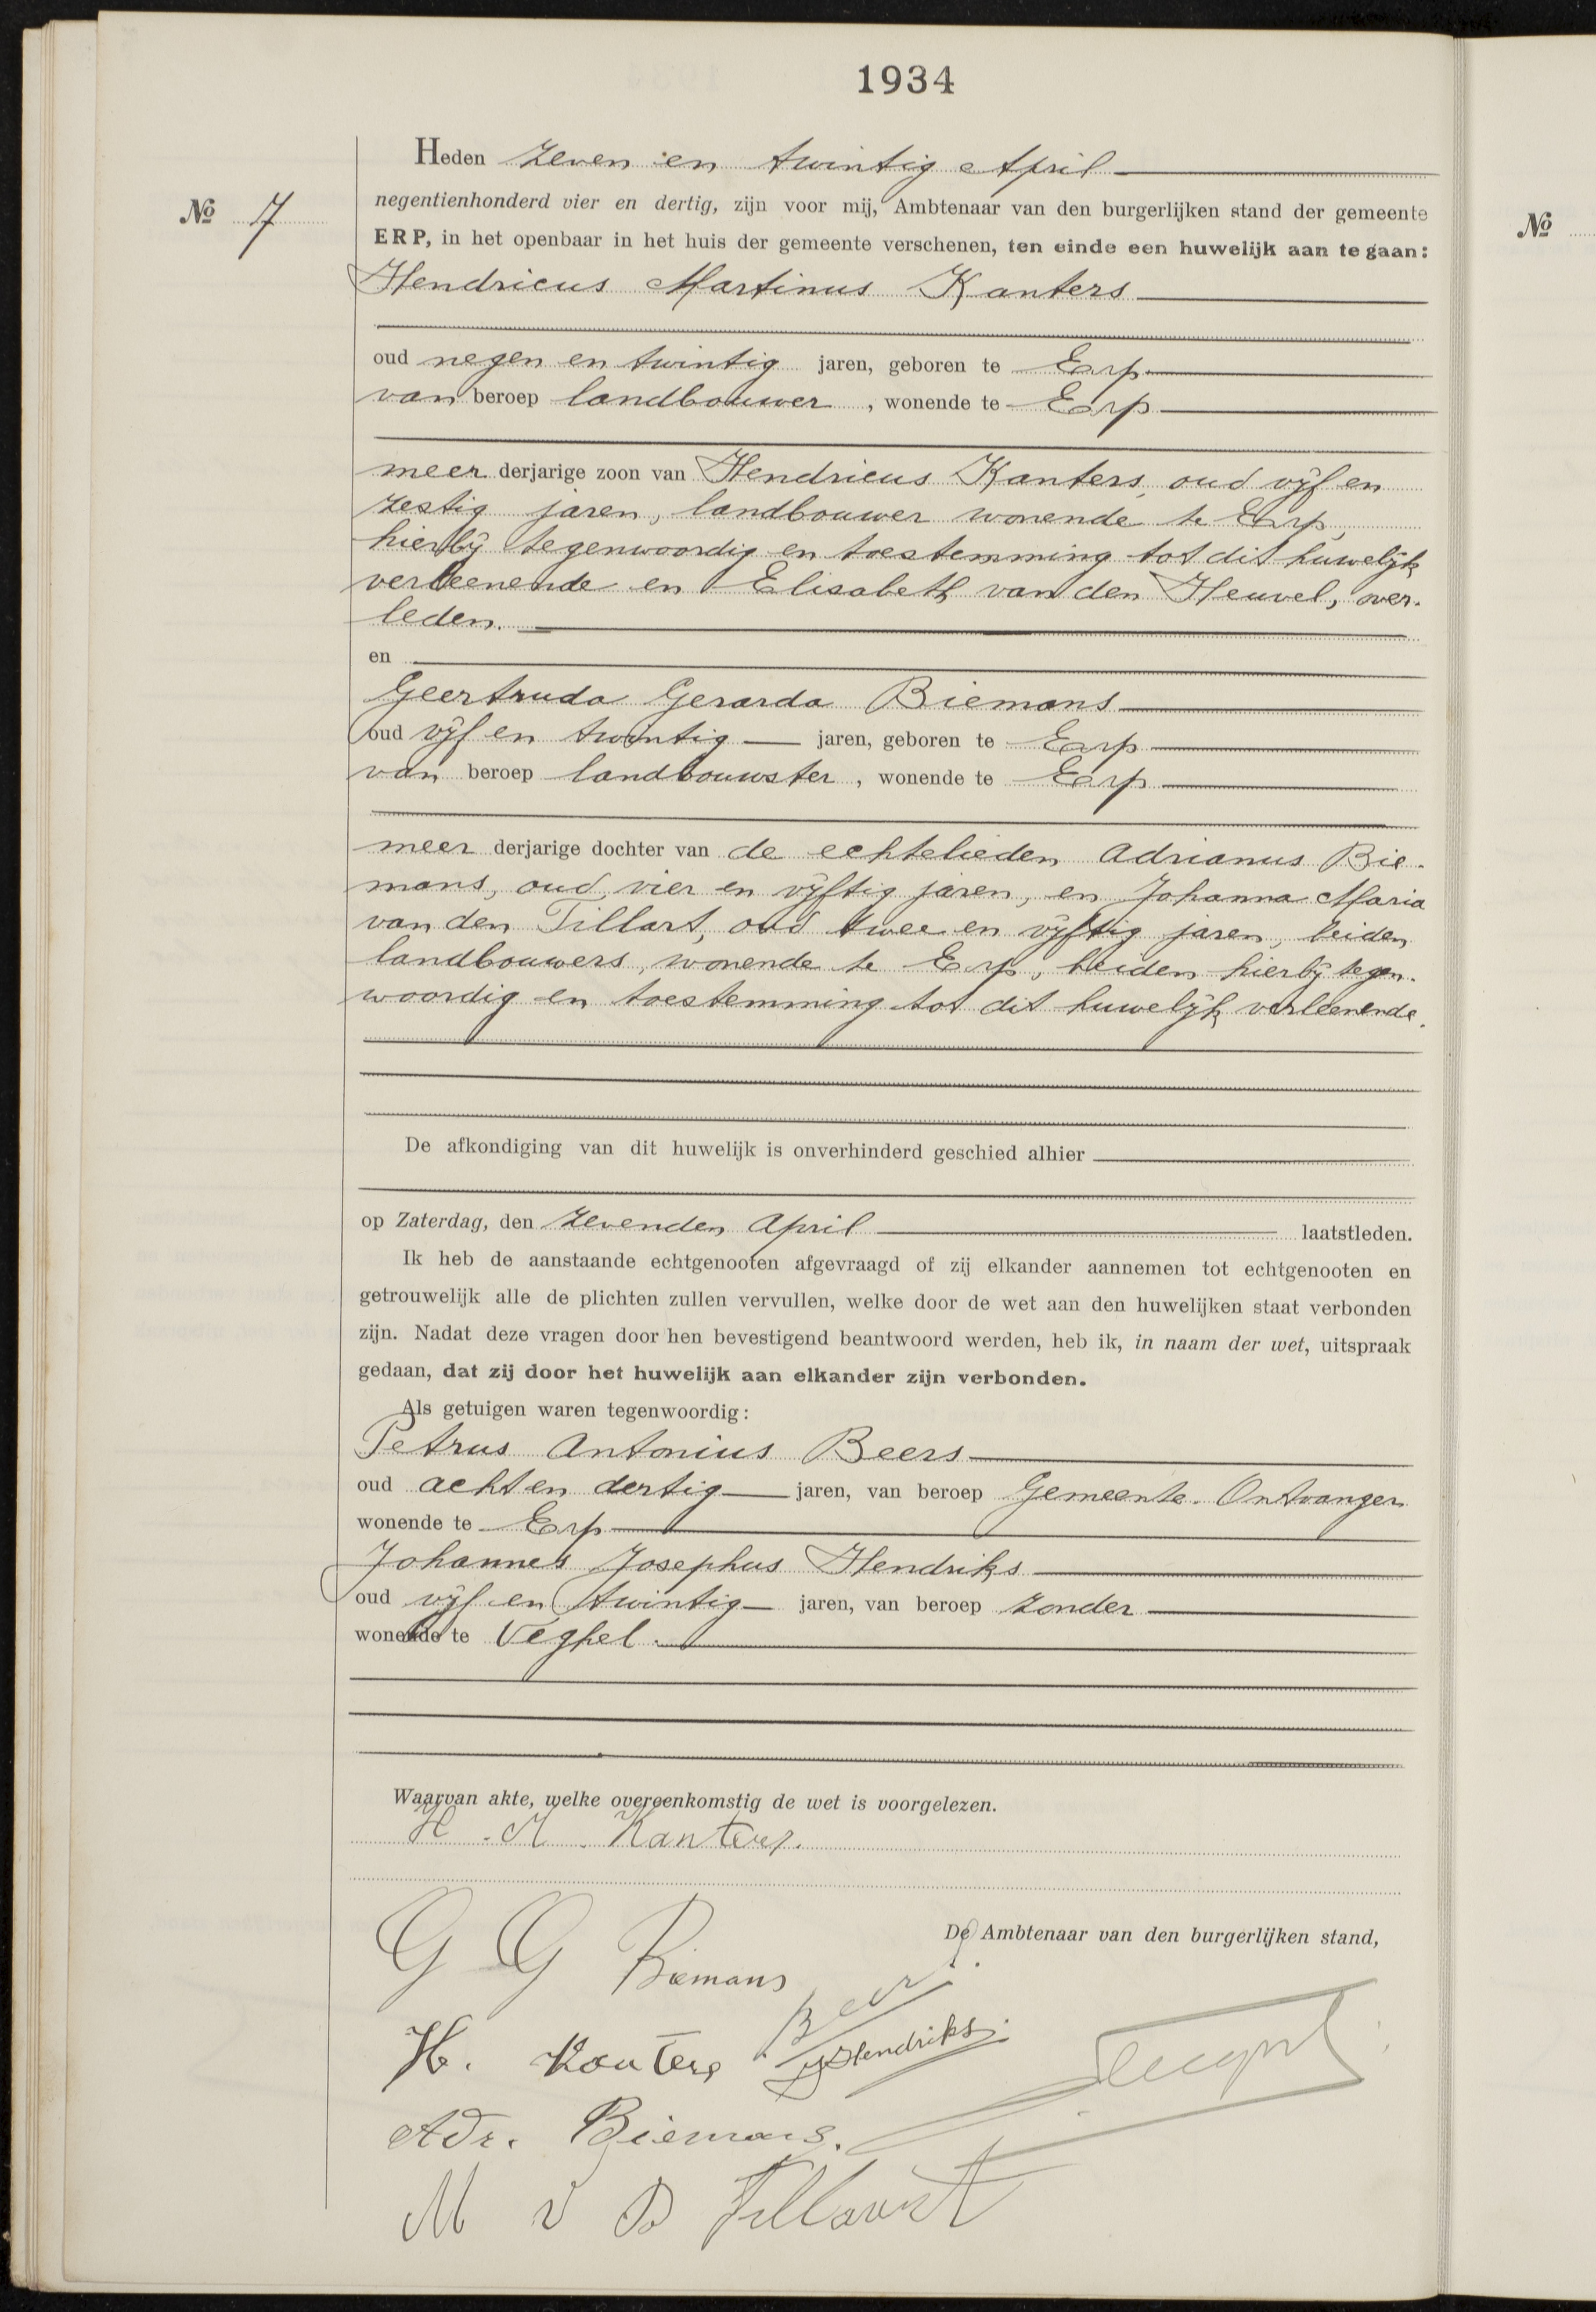 1934
Heden zeven en twintig April
No 7
negentienhonderd vier en dertig, zijn voor mij, Ambtenaar van den burgerlijken stand der gemeente
No
ERP, in het openbaar in het huis der gemeente verschenen, ten einde een huwelijk aan te gaan:
Hendricus Martinus Kanters
oud negen en twintig jaren, geboren te Erp
van beroep landbouwer, wonende te Erp
meer derjarige zoon van Hendricus Kanters, oud vijf en
zestig jaren, landbouwer wonende te Erp,
hierbij tegenwoordig en toestemming tot dit huwelijk
verleenende en Elisabeth van den Heuvel, over-
leden.
en
Geertruda Gerarda Biemans
oud vijf en twintig jaren, geboren te Erp
van beroep landbouwster, wonende te Erp
meer derjarige dochter van de echtelieden Adrianus Bie-
mans, oud vier en vijftig jaren, en Johanna Maria
van den Tillart, oud twee en vijftig jaren, beiden
landbouwers, wonende te Erp, beiden hierbij tegen-
woordig en toestemming tot dit huwelijk verleenende.
De afkondiging van dit huwelijk is onverhinderd geschied alhier
op Zaterdag, den zevenden April laatstleden.
Ik heb de aanstaande echtgenooten afgevraagd of zij elkander aannemen tot echtgenooten en
getrouwelijk alle de plichten zullen vervullen, welke door de wet aan den huwelijken staat verbonden
zijn. Nadat deze vragen door hen bevestigend beantwoord werden, heb ik, in naam der wet, uitspraak
gedaan, dat zij door het huwelijk aan elkander zijn verbonden.
Als getuigen waren tegenwoordig:
Petrus Antonius Beers
oud acht en dertig jaren, van beroep Gemeente-Ontvanger
wonende te Erp
Johannes Josephus Hendriks
oud vijf en twintig jaren, van beroep zonder
wonende te Veghel.
Waarvan akte, welke overeenkomstig de wet is voorgelezen.
H. M. Kanters.
De Ambtenaar van den burgerlijken stand,
G G Biemans
Beers
H. Kanters
JJHendriks
Adr. Biemans.
M v D Tillart